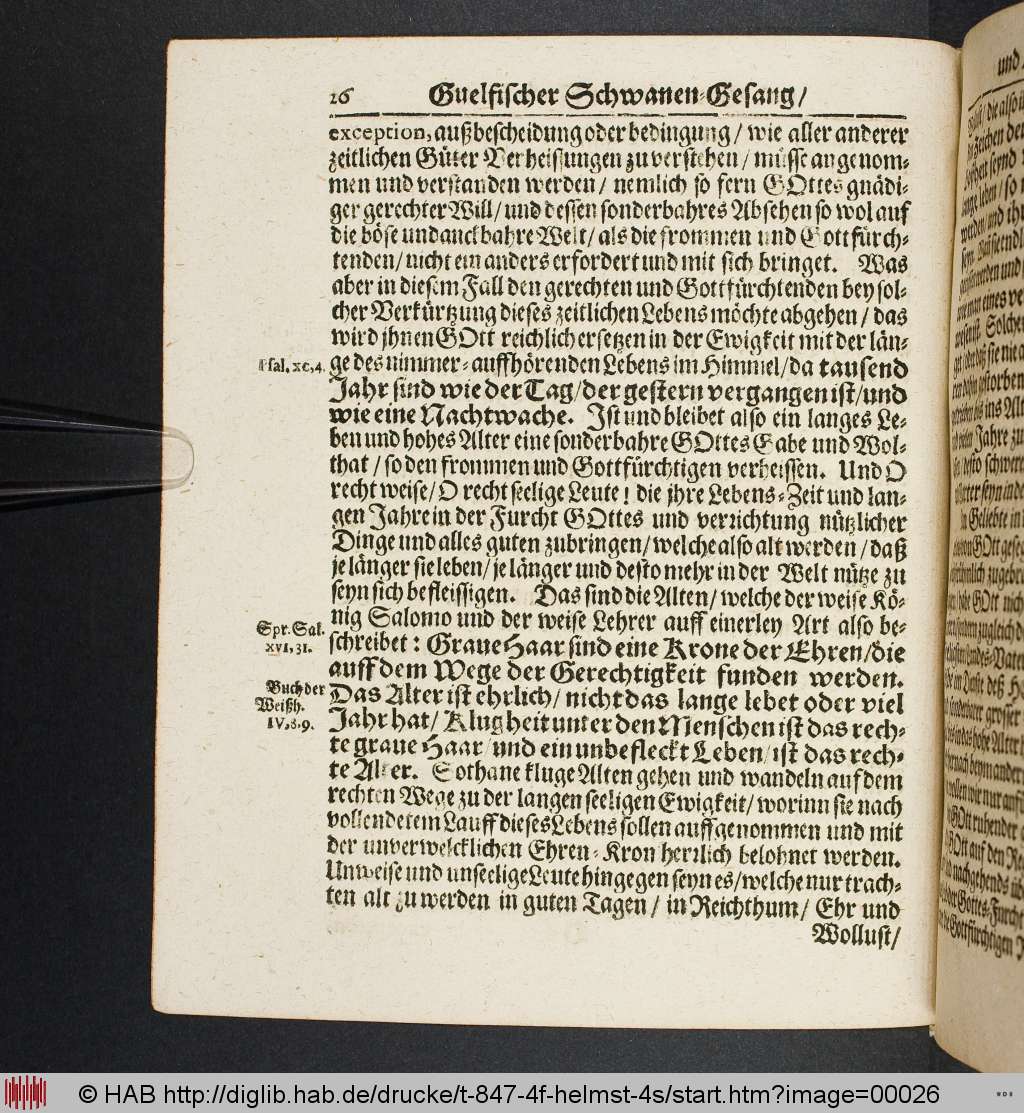 26 Guelfischer Schwanen-Gesang/
exception, außbescheidung oder bedingung / wie aller anderer
zeitlichen Güter Verheissungen zu verstehen / müsse angenom-
men und verstanden werden / nemlich so fern GOttes gnädi-
ger gerechter Will / und dessen sonderbahres Absehen so wol auf
die böse undanckbahre Welt / als die frommen und Gottfürch-
tenden / nicht ein anders erfordert und mit sich bringet. Was
aber in diesem Fall den gerechten und Gottfürchtenden bey sol-
cher Verkürtzung dieses zeitlichen Lebens möchte abgehen / das
wird jhnen GOtt reichlich ersetzen in der Ewigkeit mit der län-
Psal. xc, 4.
ge des nimmer-auffhörenden Lebens im Himmel / da tausend
Jahr sind wie der Tag / der gestern vergangen ist / und
wie eine Nachtwache. Ist und bleibet also ein langes Le-
ben und hohes Alter eine sonderbahre GOttes Gabe und Wol-
that / so den frommen und Gottfürchtigen verheissen. Und O
recht weise / O recht seelige Leute! die jhre Lebens-Zeit und lan-
gen Jahre in der Furcht GOttes und verrichtung nützlicher
Dinge und alles guten zubringen / welche also alt werden / daß
je länger sie leben / je länger und desto mehr in der Welt nütze zu
seyn sich befleissigen. Das sind die Alten / welche der weise Kö-
nig Salomo und der weise Lehrer auff einerley Art also be-
Spr. Sal.
xvi, 31.
schreibet: Graue Haar sind eine Krone der Ehren / die
auff dem Wege der Gerechtigkeit funden werden.
Buch der
Weißh.
IV, 8, 9.
Das Alter ist ehrlich / nicht das lange lebet oder viel
Jahr hat / Klugheit unter den Menschen ist das rech-
te graue Haar / und ein unbefleckt Leben / ist das rech-
te Alter. Sothane kluge Alten gehen und wandeln auf dem
rechten Wege zu der langen seeligen Ewigkeit / worinn sie nach
vollendetem Lauff dieses Lebens sollen auffgenommen und mit
der unverwelcklichen Ehren-Kron herrlich belohnet werden.
Unweise und unseelige Leute hingegen seyn es / welche nur trach-
ten alt zu werden in guten Tagen / in Reichthum / Ehr und
Wollust /
© HAB http://diglib.hab.de/drucke/t-847-4f-helmst-4s/start.htm?image=00026